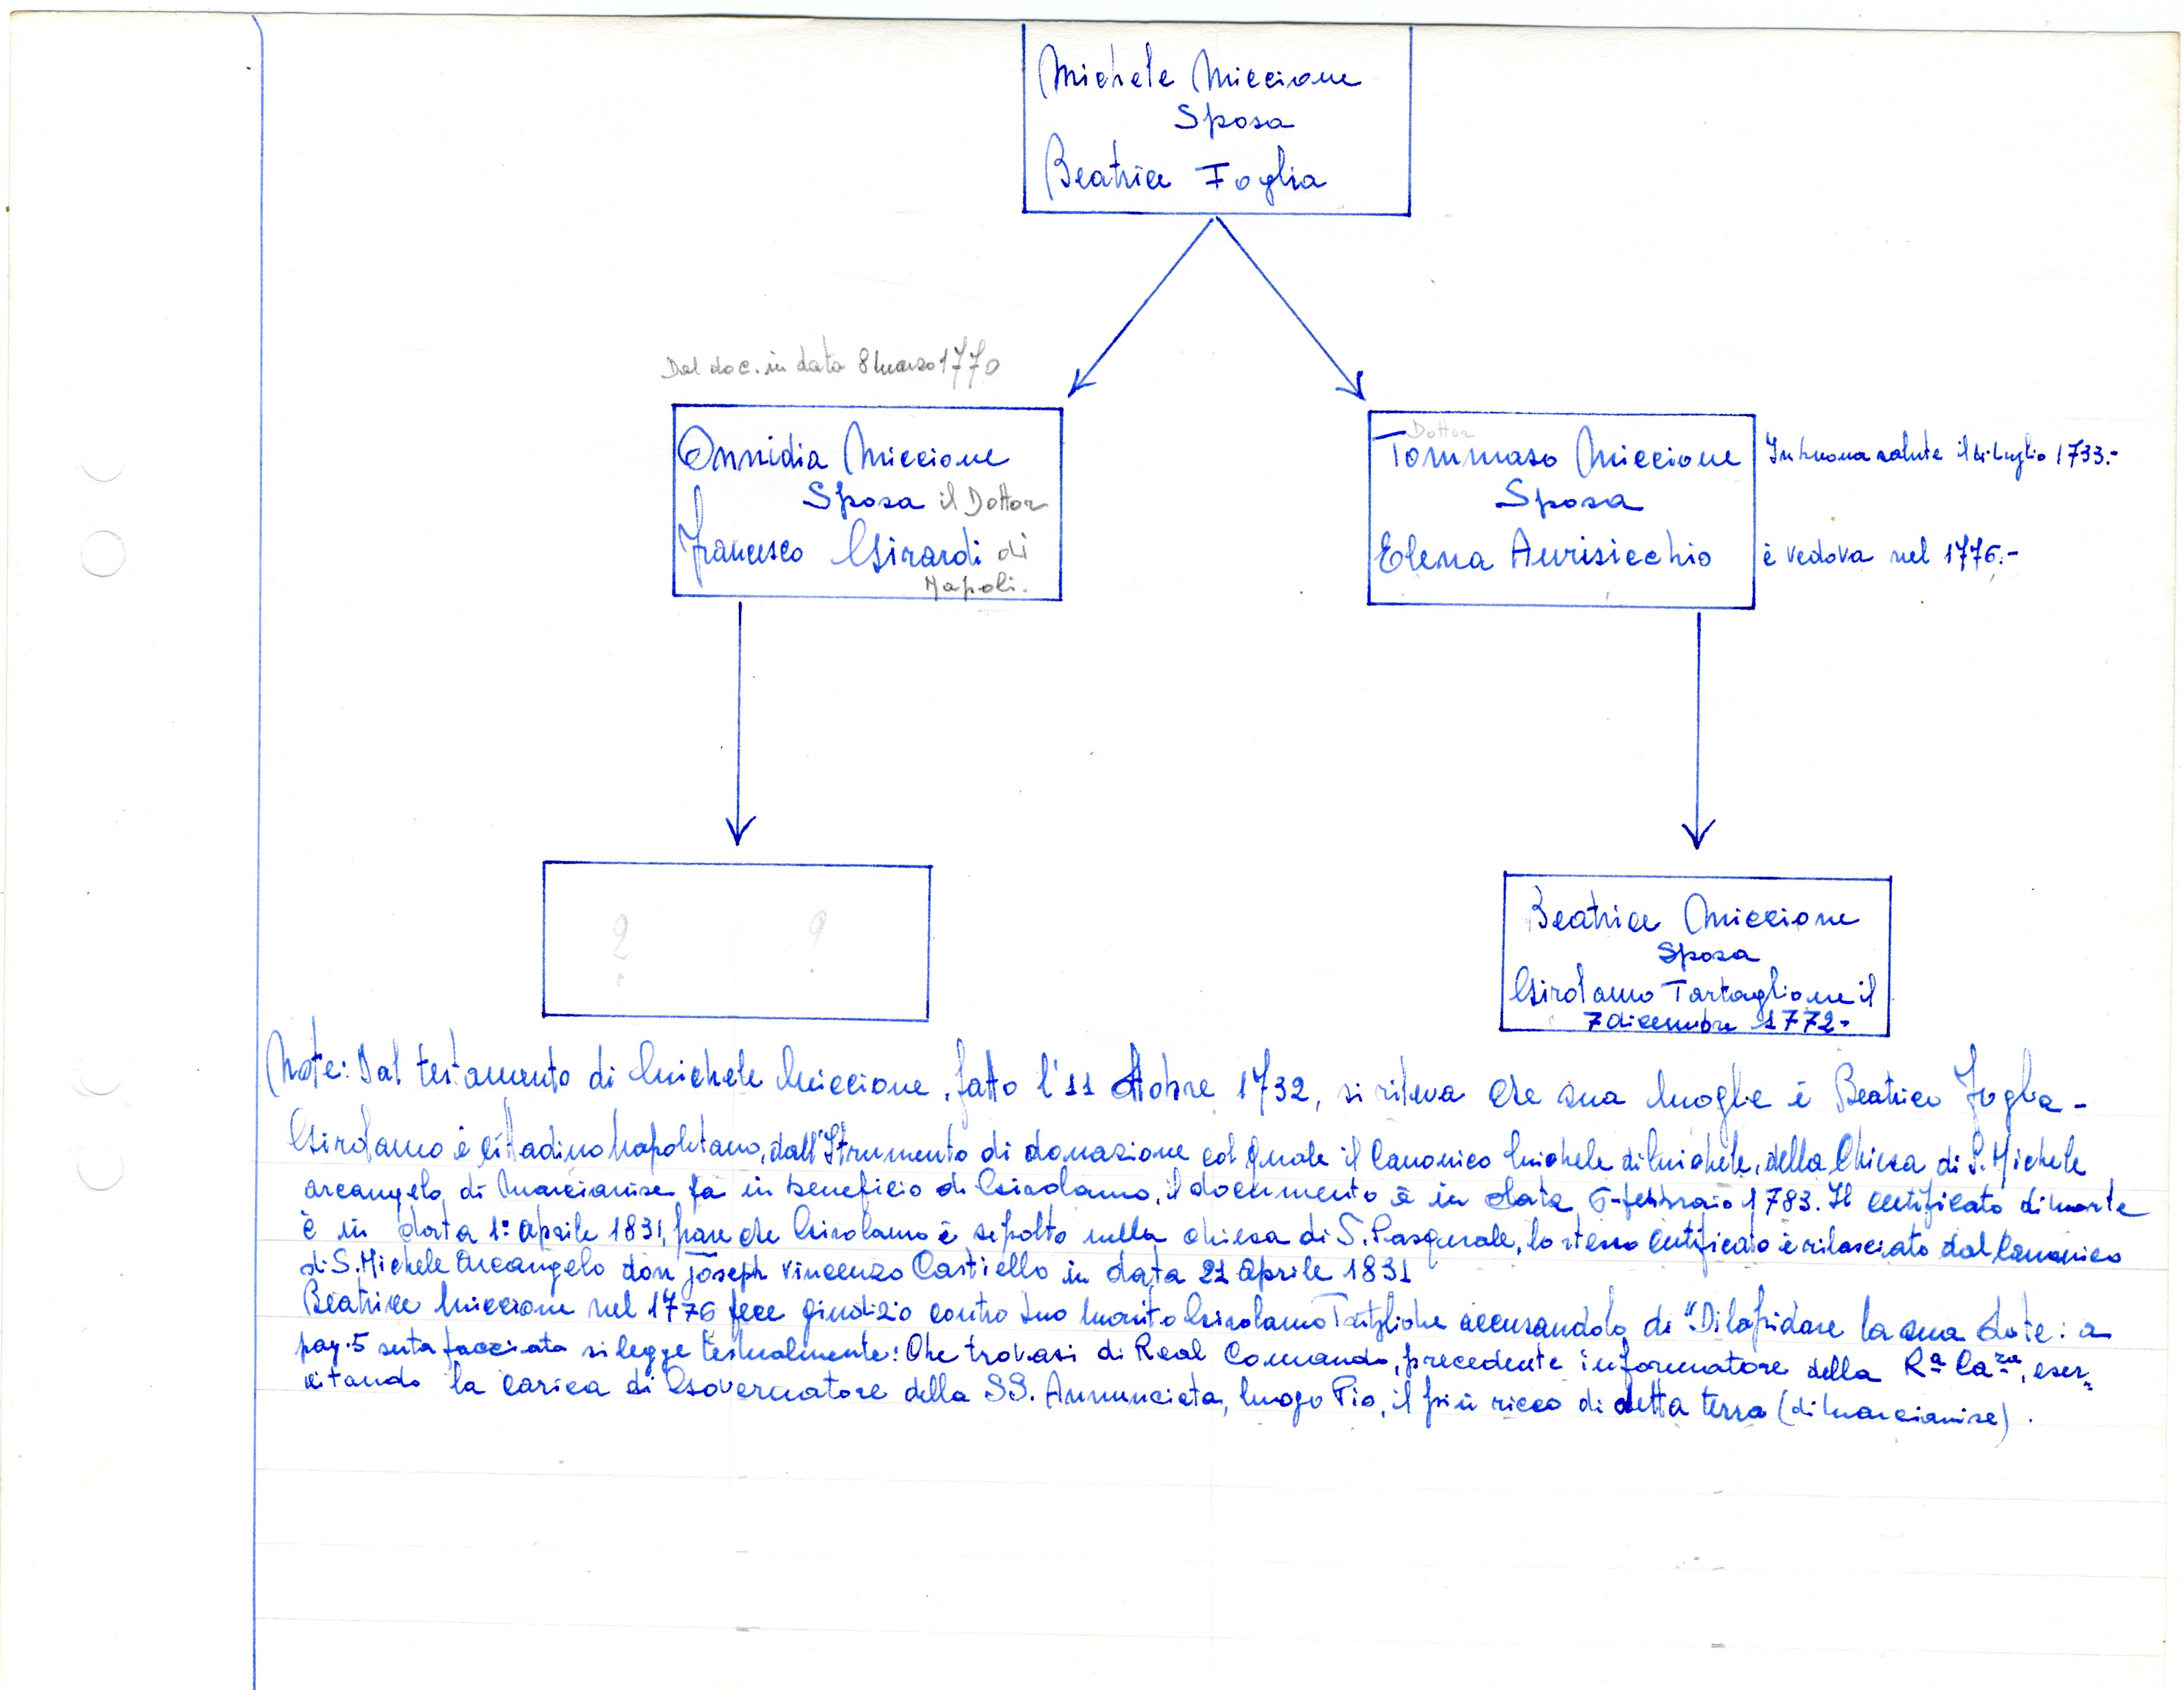 Michele Miccione
Sposa
Beatrice Foglia
Dal doc. in data 8 marzo 1770
Onnidia Miccione
Sposa il Dottor
Francesco Girardi di
Napoli.
Dottor
Tommaso Miccione
Sposa
Elena Aurisicchio
In buona salute il luglio 1733.-
è vedova nel 1776.-
? ?
Beatrice Miccione
Sposa
Girolamo Tartaglione il
7 dicembre 1772-
Note: Dal testamento di Michele Miccione, fatto l'11 Ottobre 1732, si rileva che sua moglie è Beatrice Foglia -
Girolamo è cittadino napoletano, dall'Strumento di donazione col quale il Canonico Michele di Michele, della Chiesa di S. Michele
arcangelo, di Marcianise fa in beneficio di Girolamo, il documento è in data 6-febbraio 1783. Il certificato di morte
è in data 1° aprile 1831, pare che Girolamo è sepolto nella chiesa di S. Pasquale, lo stesso certificato è rilasciato dal Canonico
di S. Michele Arcangelo don Joseph Vincenzo Castiello in data 21 aprile 1831
Beatrice Miccione nel 1776 fece giudizio contro suo marito Girolamo accusandolo di "Dilapidare la sua dote: a
pag. 5 sesta facciata si legge testualmente: Che trovasi di Real Comando, precedente informatore della Rª Caᵐª, eser=
citando la carica di Governatore della SS. Annunciata, luogo Pio, il più ricco di detta terra (di Marcianise).